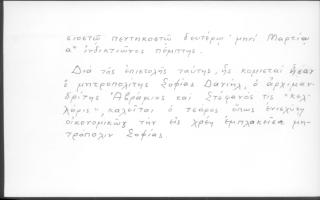 σιοστῷ πεντηκοστῷ δευτέρῳ· μηνὶ Μαρτίῳ
αῃ ἰνδικτιῶνος πέμπτης.
Διὰ τῆς ἐπιστολῆς ταύτης, ἧς κομισταὶ ἦσαν
ὁ μητροπολίτης Σοφίας Δανιήλ, ὁ ἀρχιμαν-
δρίτης Ἀβράμιος καὶ Στέφανός τις "Κελ-
λάρις", καλεῖται ὁ τσάρος ὅπως ἐνισχύσῃ
οἰκονομικῶς τὴν εἰς χρέη ἐμπλακεῖσα μη-
τρόπολιν Σοφίας.